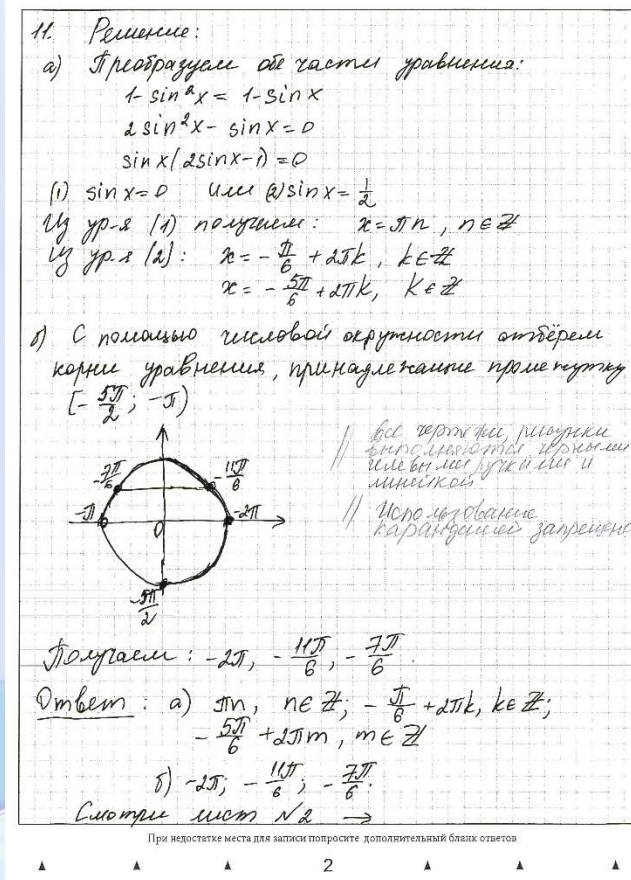 11. Решение:
а) Преобразуем обе части уравнения:
1-sin²x = 1-sinx
2sin²x - sinx = 0
sinx(2sinx-1)=0
(1) sinx=0 или (2) sinx = 1/2
Из ур-я (1) получаем: x=πn, n∈ℤ
Из ур-я (2): x = -π/6 + 2πk, k∈ℤ
x = -5π/6 + 2πk, k∈ℤ
б) С помощью числовой окружности отберём
корни уравнения, принадлежащие промежутку
[-5π/2; -π)
-7π/6 -11π/6
-π 0 -2π
-5π/2
// все чертежи, рисунки
выполняются чёрными
гелевыми ручками и
линейкой
// Использование
карандашей запрещено
Получаем: -2π, -11π/6, -7π/6.
Ответ: а) πn, n∈ℤ; -π/6 + 2πk, k∈ℤ;
-5π/6 + 2πm, m∈ℤ
б) -2π; -11π/6; -7π/6.
Смотри лист №2 →
При недостатке места для записи попросите дополнительный бланк ответов
2